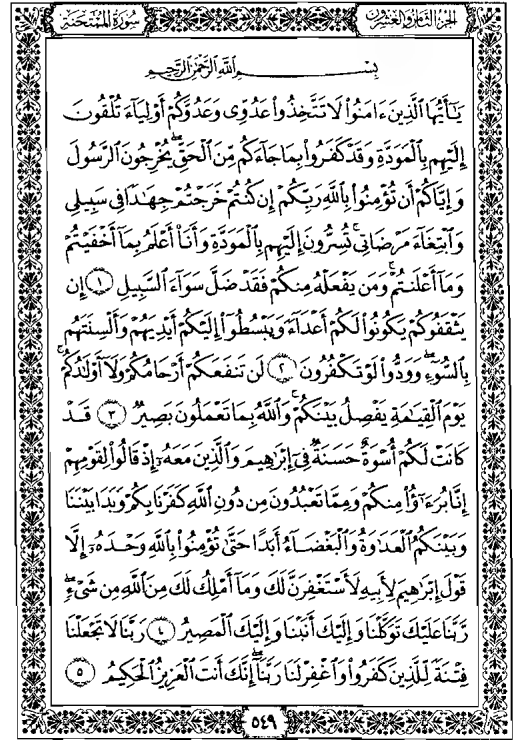 سُورَةُ المُمْتَحنَة
الجزء الثامن والعشرون
بِسْمِ اللَّهِ الرَّحْمَٰنِ الرَّحِيمِ
يَٰٓأَيُّهَا ٱلَّذِينَ ءَامَنُوا۟ لَا تَتَّخِذُوا۟ عَدُوِّى وَعَدُوَّكُمْ أَوْلِيَآءَ تُلْقُونَ
إِلَيْهِم بِٱلْمَوَدَّةِ وَقَدْ كَفَرُوا۟ بِمَا جَآءَكُم مِّنَ ٱلْحَقِّ يُخْرِجُونَ ٱلرَّسُولَ
وَإِيَّاكُمْ أَن تُؤْمِنُوا۟ بِٱللَّهِ رَبِّكُمْ إِن كُنتُمْ خَرَجْتُمْ جِهَٰدًا فِى سَبِيلِى
وَٱبْتِغَآءَ مَرْضَاتِى ۚ تُسِرُّونَ إِلَيْهِم بِٱلْمَوَدَّةِ وَأَنَا۠ أَعْلَمُ بِمَآ أَخْفَيْتُمْ
وَمَآ أَعْلَنتُمْ ۚ وَمَن يَفْعَلْهُ مِنكُمْ فَقَدْ ضَلَّ سَوَآءَ ٱلسَّبِيلِ ١ إِن
يَثْقَفُوكُمْ يَكُونُوا۟ لَكُمْ أَعْدَآءً وَيَبْسُطُوٓا۟ إِلَيْكُمْ أَيْدِيَهُمْ وَأَلْسِنَتَهُم
بِٱلسُّوٓءِ وَوَدُّوا۟ لَوْ تَكْفُرُونَ ٢ لَن تَنفَعَكُمْ أَرْحَامُكُمْ وَلَآ أَوْلَٰدُكُمْ ۚ
يَوْمَ ٱلْقِيَٰمَةِ يَفْصِلُ بَيْنَكُمْ ۚ وَٱللَّهُ بِمَا تَعْمَلُونَ بَصِيرٌ ٣ قَدْ
كَانَتْ لَكُمْ أُسْوَةٌ حَسَنَةٌ فِىٓ إِبْرَٰهِيمَ وَٱلَّذِينَ مَعَهُۥٓ إِذْ قَالُوا۟ لِقَوْمِهِمْ
إِنَّا بُرَءَٰٓؤُا۟ مِنكُمْ وَمِمَّا تَعْبُدُونَ مِن دُونِ ٱللَّهِ كَفَرْنَا بِكُمْ وَبَدَا بَيْنَنَا
وَبَيْنَكُمُ ٱلْعَدَٰوَةُ وَٱلْبَغْضَآءُ أَبَدًا حَتَّىٰ تُؤْمِنُوا۟ بِٱللَّهِ وَحْدَهُۥٓ إِلَّا
قَوْلَ إِبْرَٰهِيمَ لِأَبِيهِ لَأَسْتَغْفِرَنَّ لَكَ وَمَآ أَمْلِكُ لَكَ مِنَ ٱللَّهِ مِن شَىْءٍ ۖ
رَّبَّنَا عَلَيْكَ تَوَكَّلْنَا وَإِلَيْكَ أَنَبْنَا وَإِلَيْكَ ٱلْمَصِيرُ ٤ رَبَّنَا لَا تَجْعَلْنَا
فِتْنَةً لِّلَّذِينَ كَفَرُوا۟ وَٱغْفِرْ لَنَا رَبَّنَآ ۖ إِنَّكَ أَنتَ ٱلْعَزِيزُ ٱلْحَكِيمُ ٥
٥٤٩